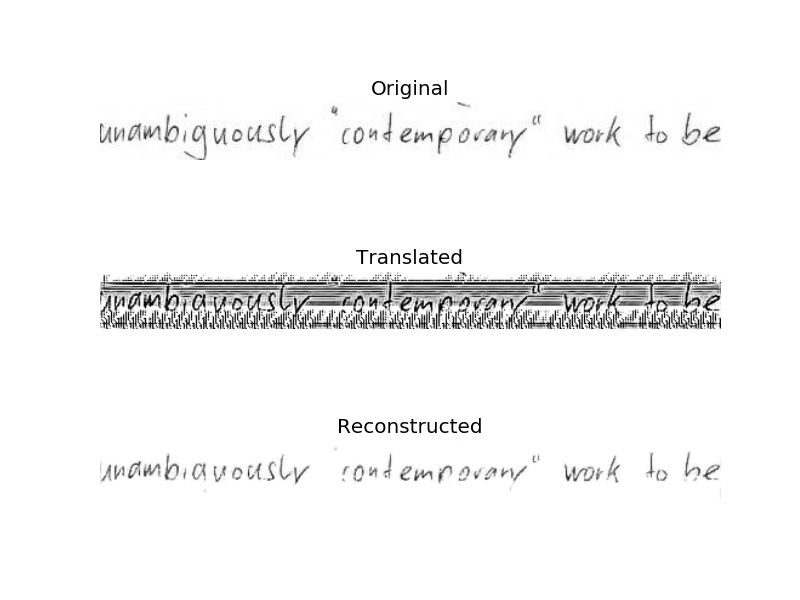 Original
unambiguously "contemporary" work to be
Translated
unambiguously contemporary" work to be
Reconstructed
unambiguously contemporary" work to be